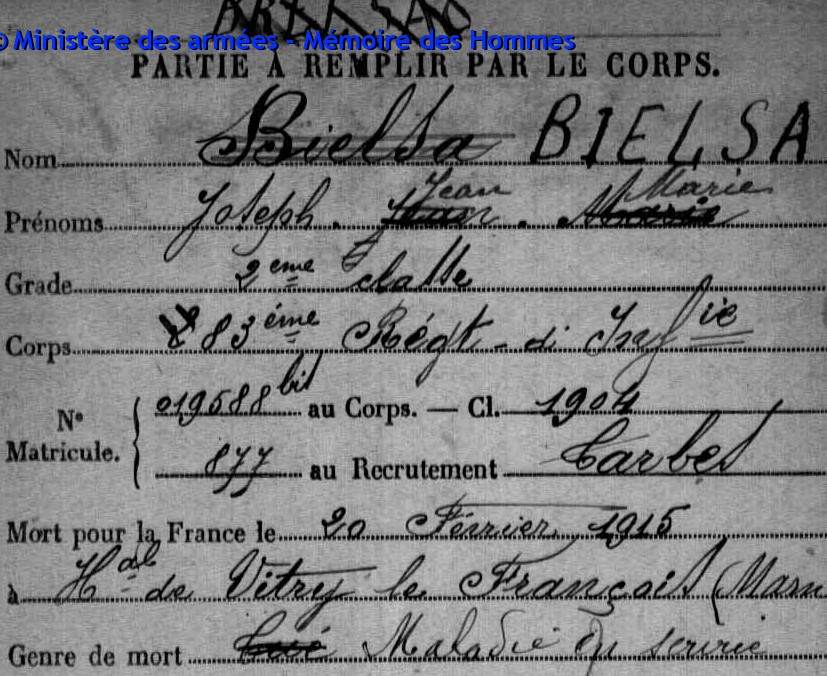 © Ministère des armées - Mémoire des Hommes
PARTIE À REMPLIR PAR LE CORPS.
Nom Bielsa BIELSA
Prénoms Joseph. Jean Jean. Marie Marie
Grade 2eme classe
Corps 83éme Régt. di Infie
N° Matricule. 019588 bis au Corps. — Cl. 1904
877 au Recrutement Tarbes
Mort pour la France le 20 Février 1915
à Hal de Vitry le François (Marn
Genre de mort Tué Maladie en service